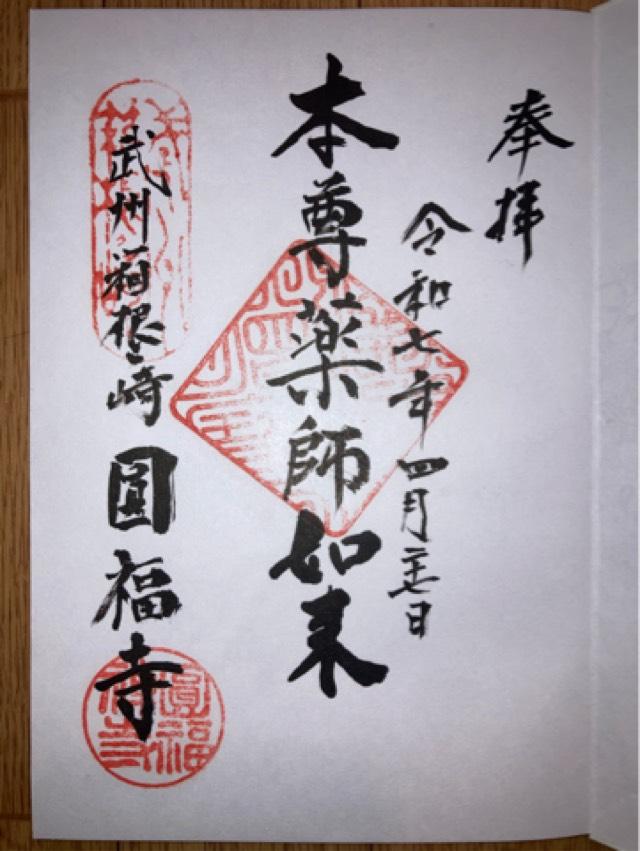 奉拝
令和七年四月二七日
本尊薬師如来
武州箱根ヶ崎圓福寺
圓福寺